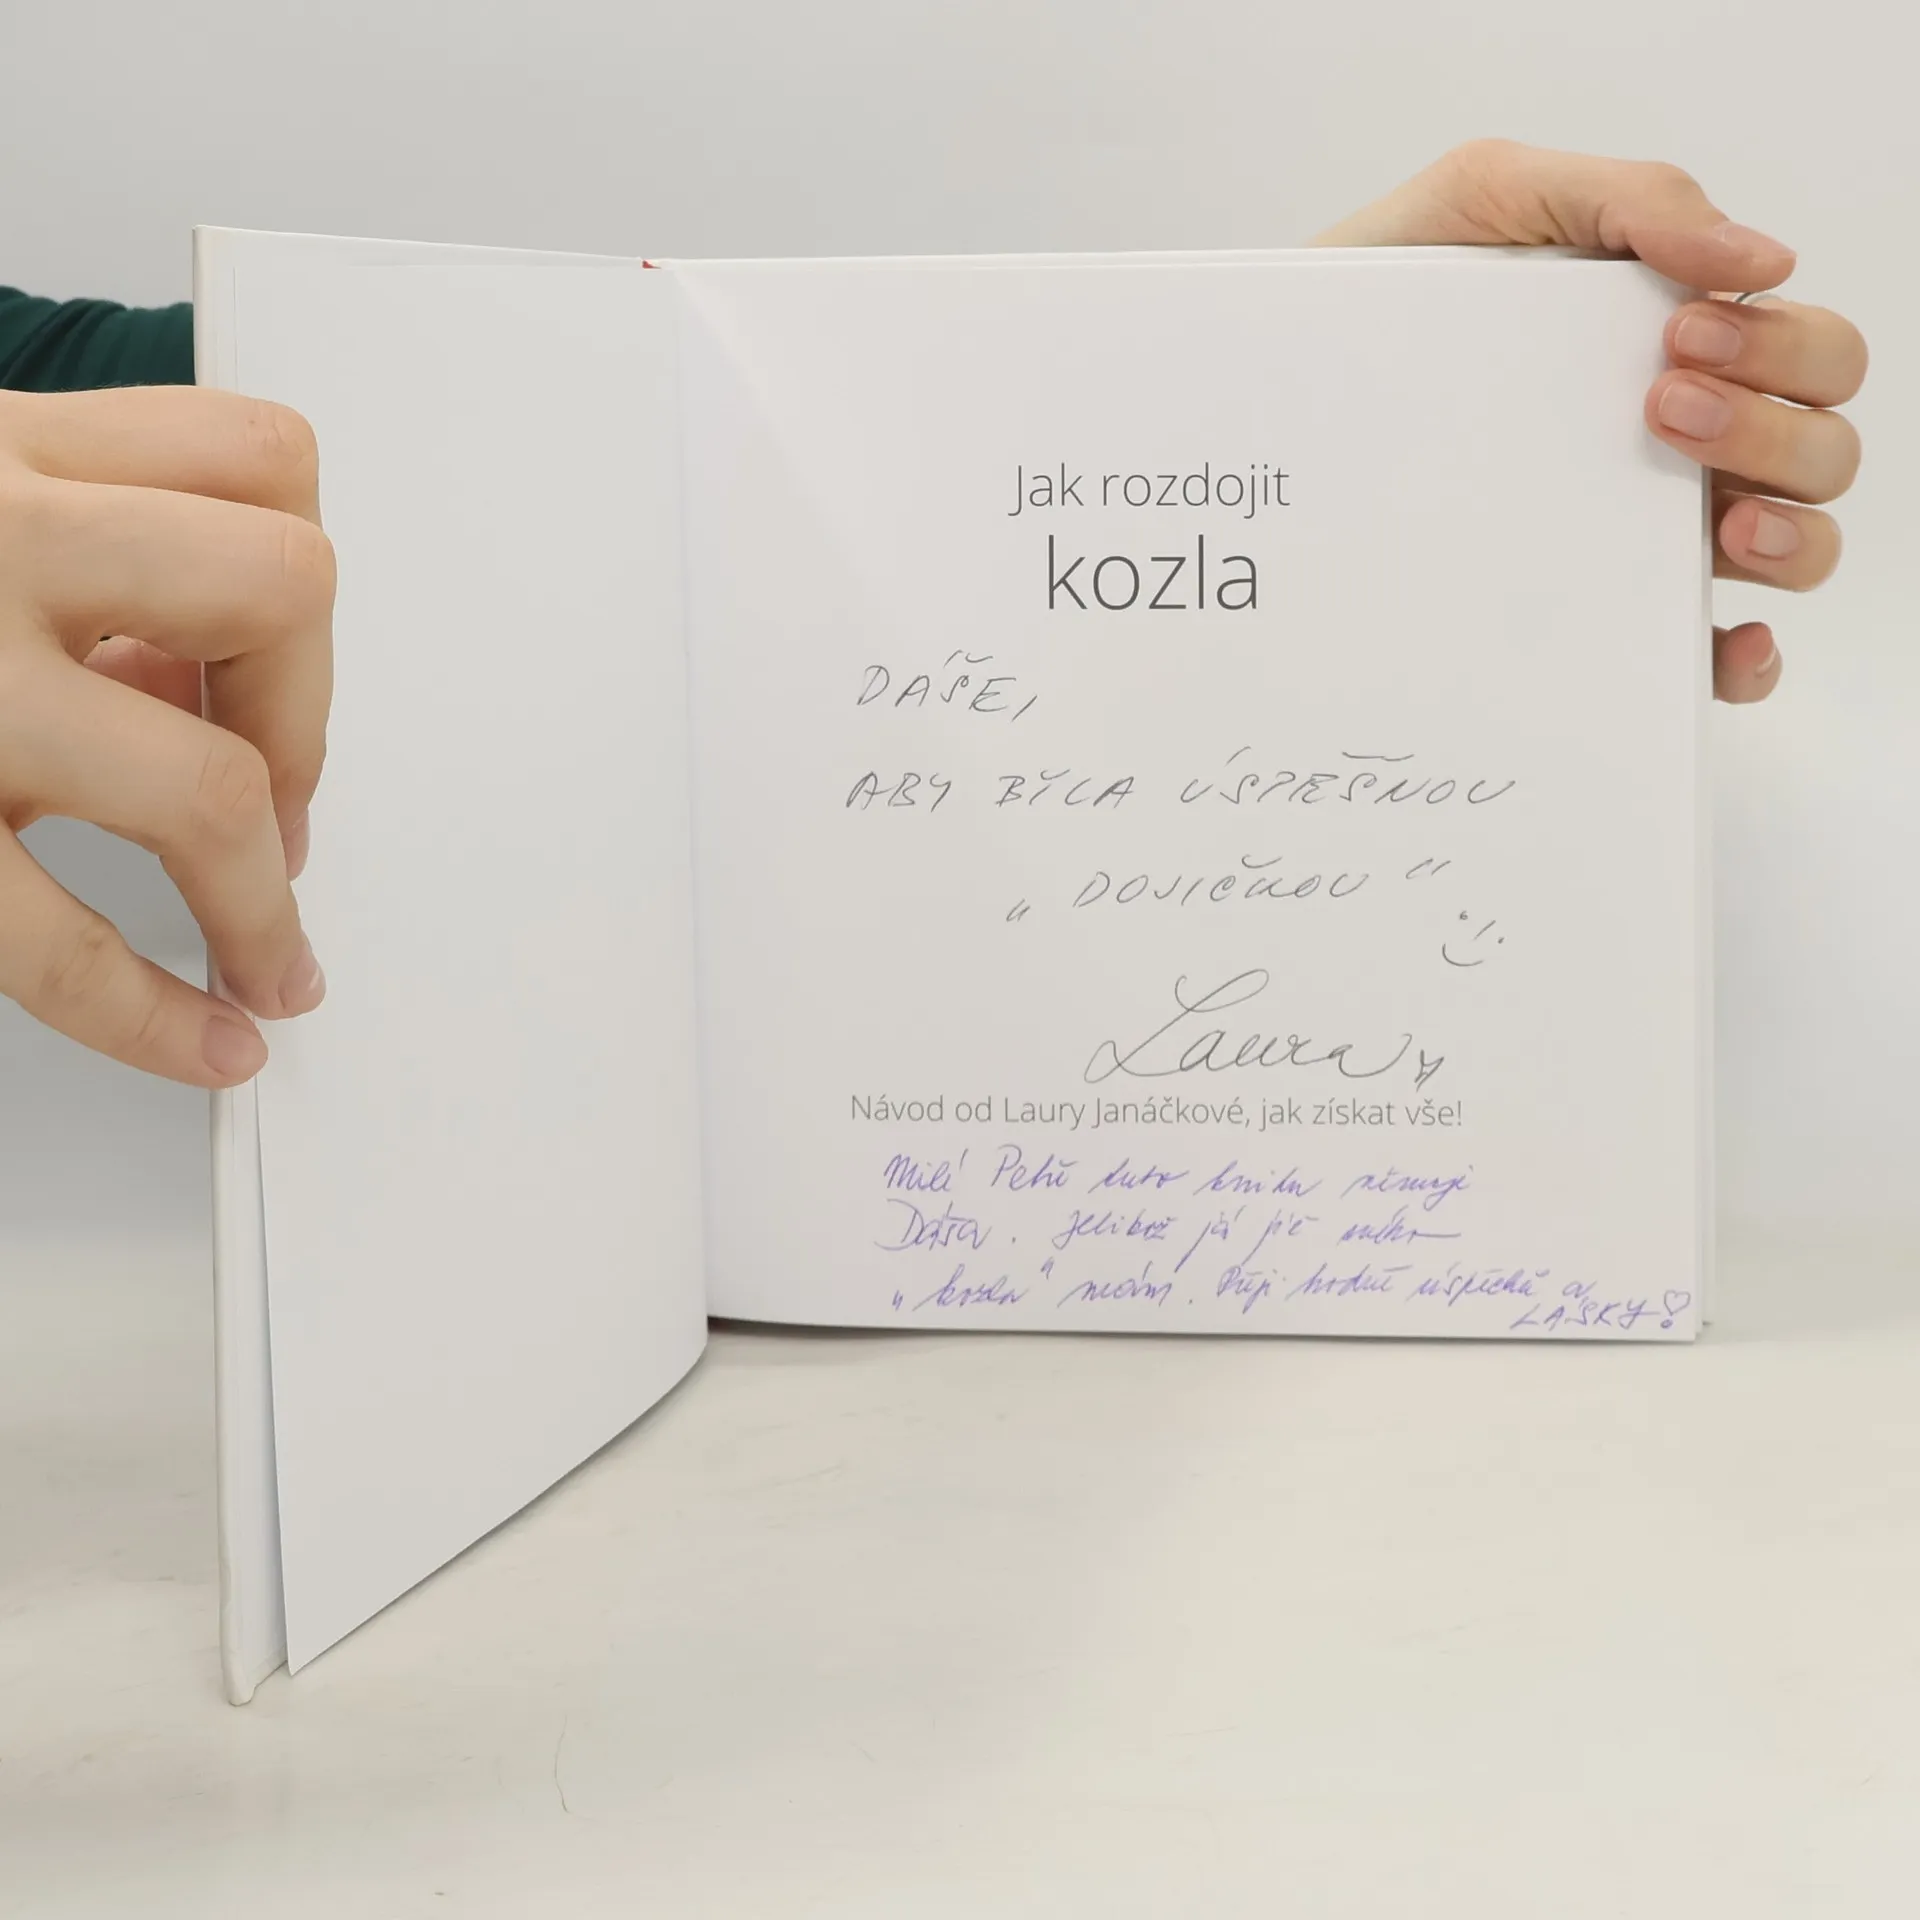 Jak rozdojit
kozla
DÁŠE,
ABY BYLA ÚSPĚŠNOU
„DOJIČKOU"
Laura
Návod od Laury Janáčkové, jak získat vše!
Milé Petře tuto knihu věnuje
Dáša. Jelikož já již svého
„kozla" mám. Přeji hodně úspěchů a
LÁSKY!